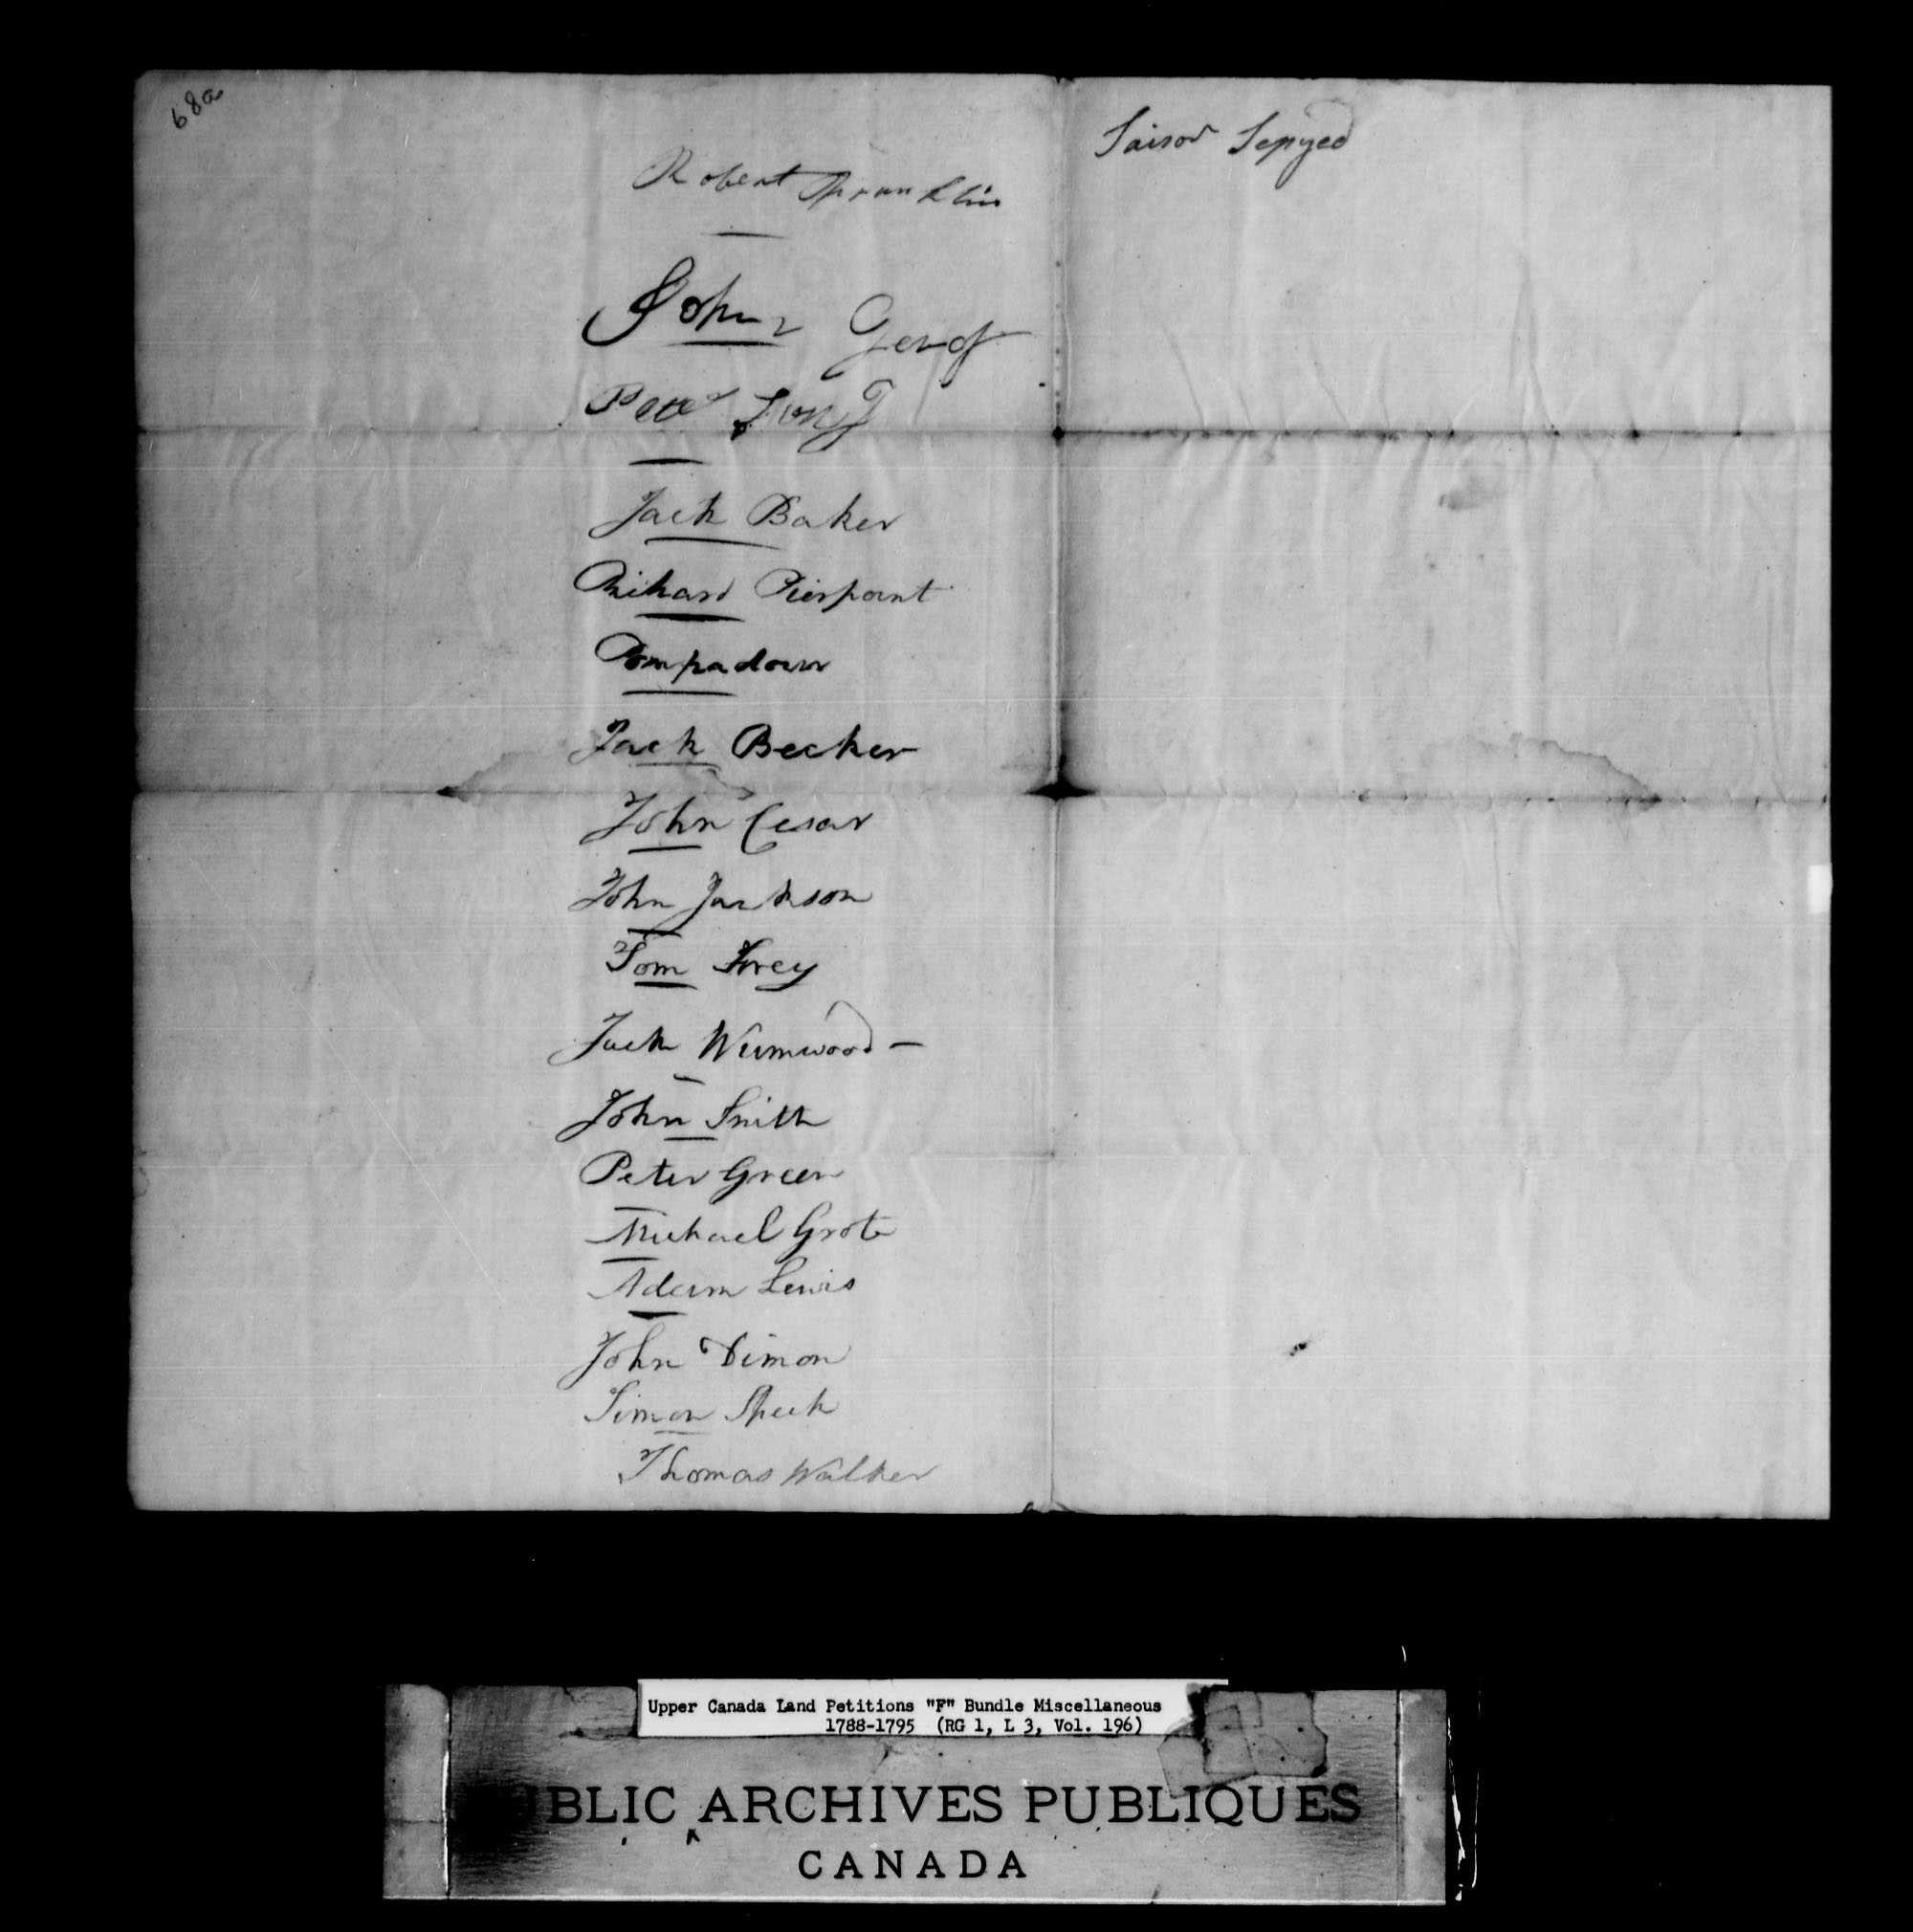 68a
Robert Franklin
John Gerof
Peter Long
Jack Baker
Richard Pierpoint
Pompadour
Jack Becker
John Cesar
John Jackson
Tom Frey
Jack Wurmwood -
John Smith
Peter Green
Michael Grote
Adam Lewis
John Dimon
Simon Speck
Thomas Walker
Saison Sepyed
Upper Canada Land Petitions "F" Bundle Miscellaneous
1788-1795 (RG 1, L 3, Vol. 196)
BLIC ARCHIVES PUBLIQUES
CANADA